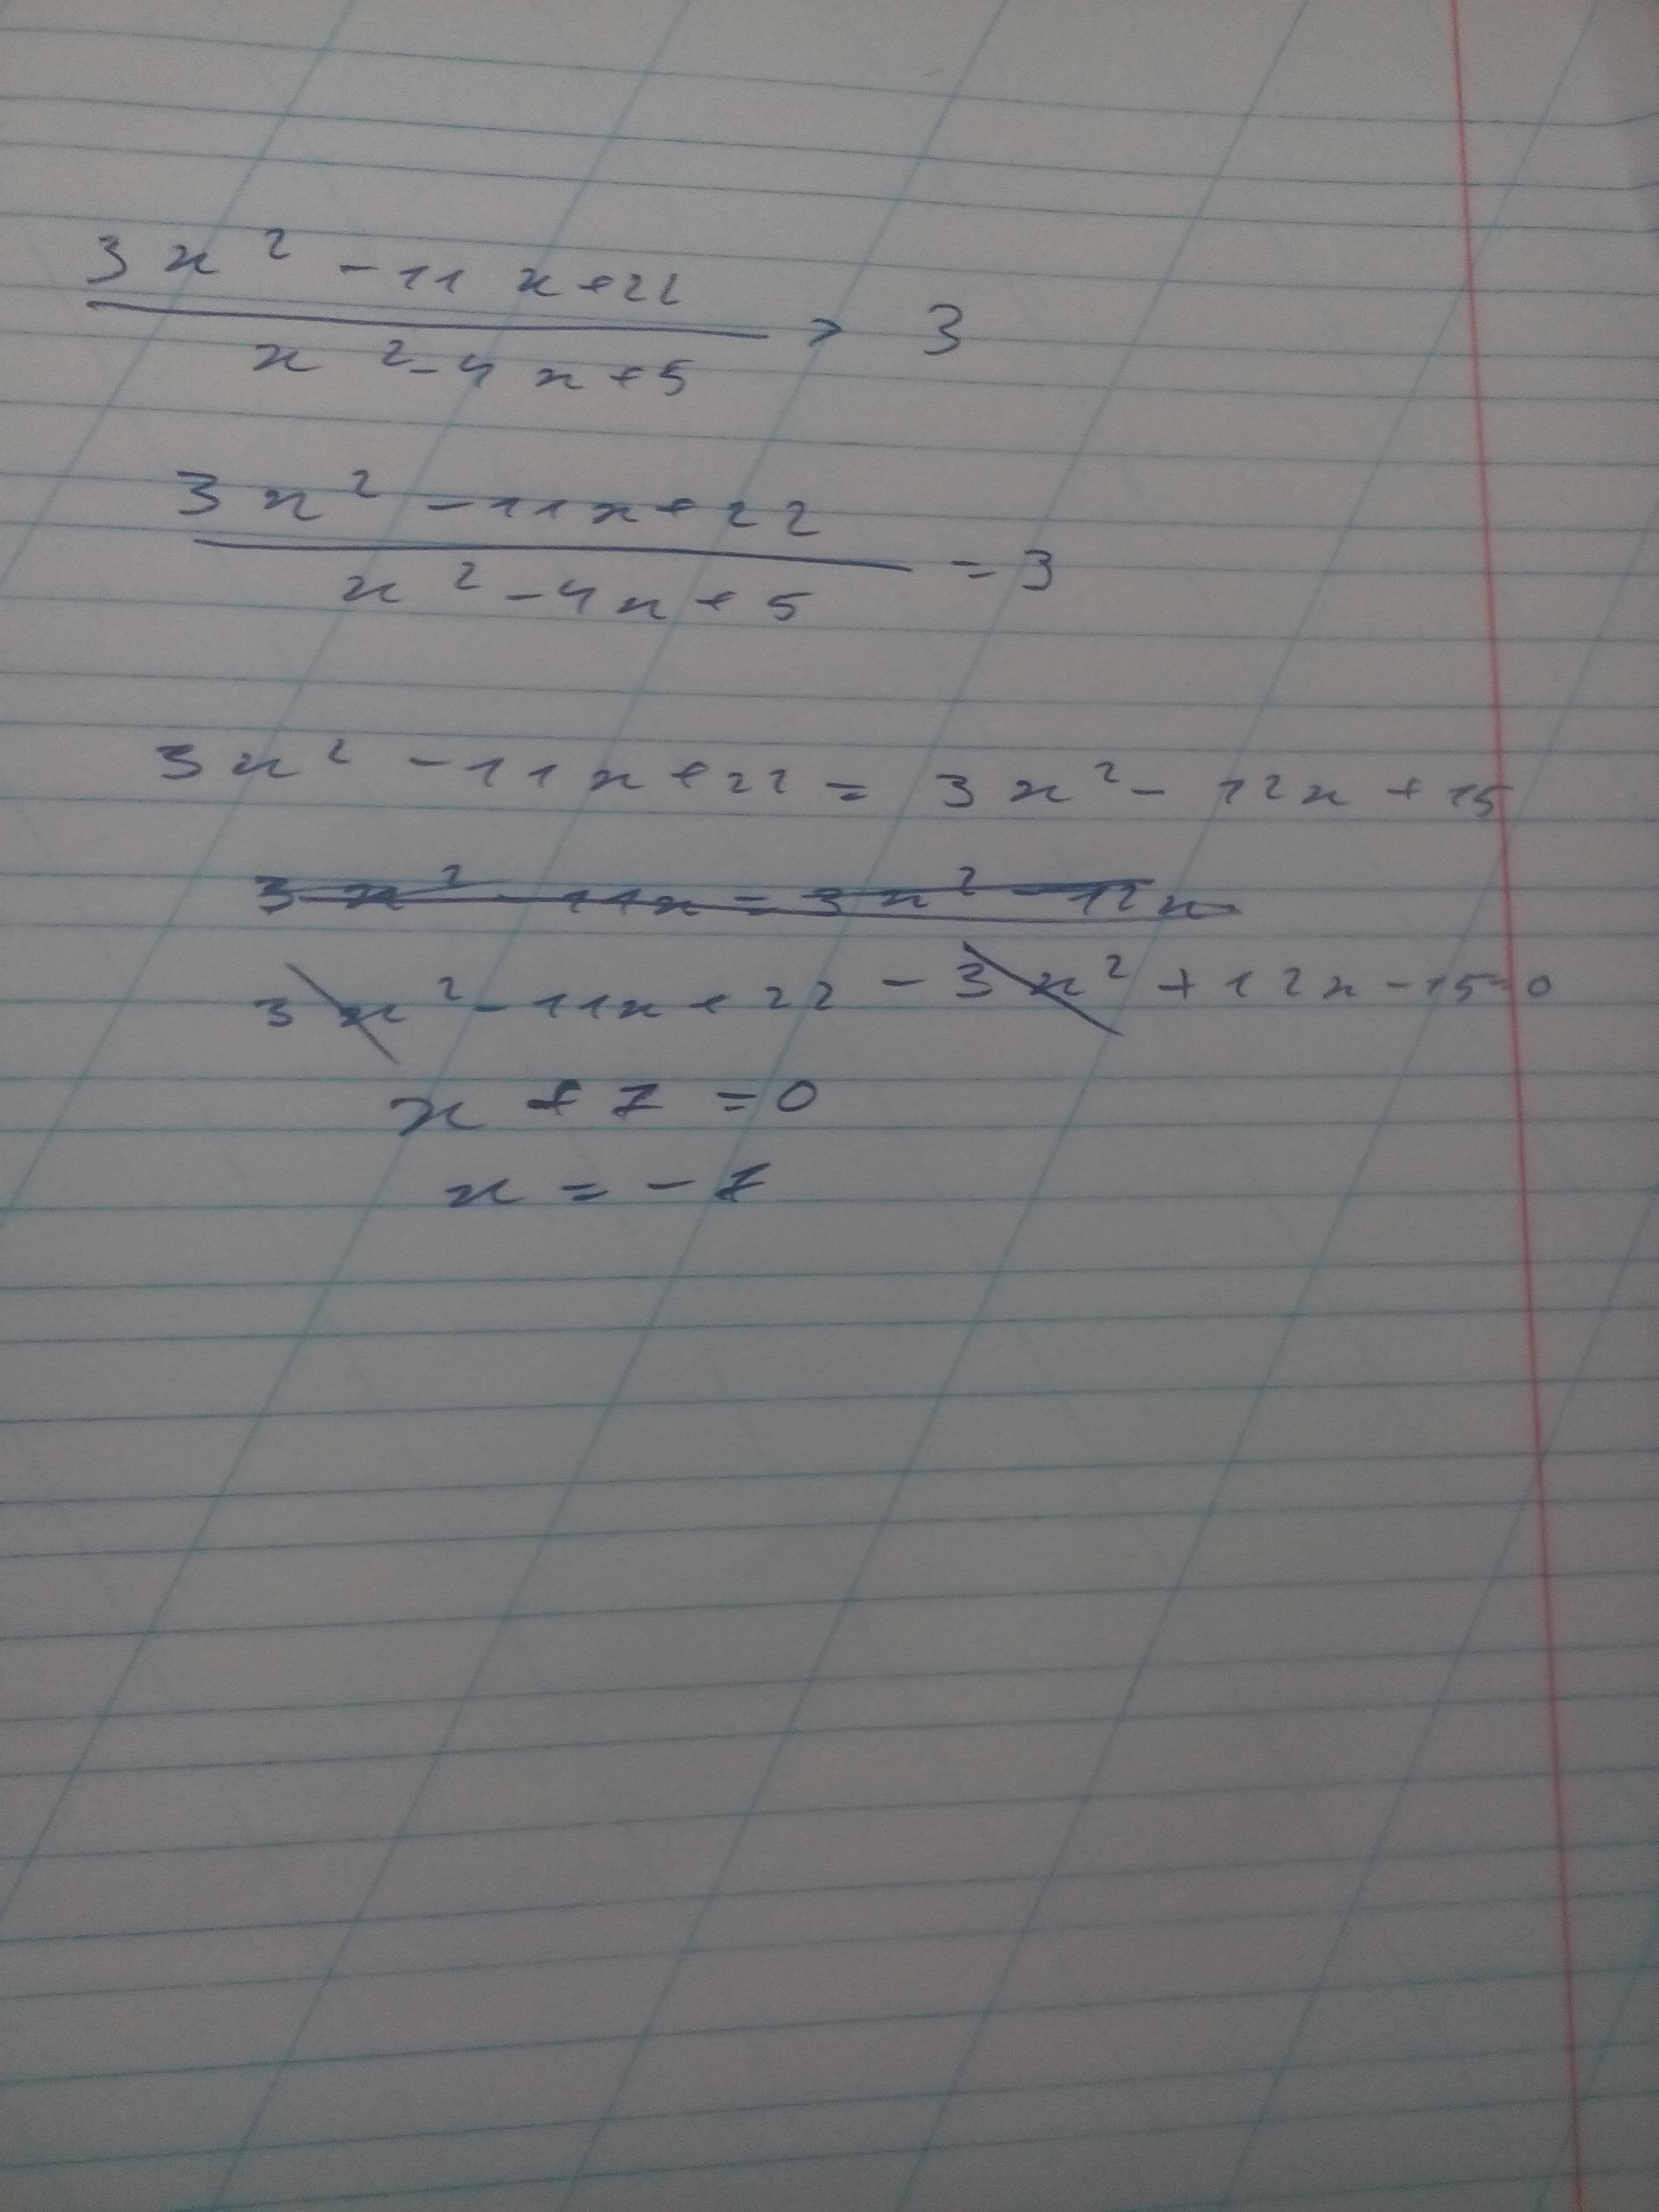 3x² - 11x + 22
x² - 4x + 5 > 3
3x² - 11x + 22
x² - 4x + 5 = 3
3x² - 11x + 22 = 3x² - 12x + 15
3x² - 11x = 3x² - 12x
3x² - 11x + 22 - 3x² + 12x - 15 = 0
x + 7 = 0
x = -7